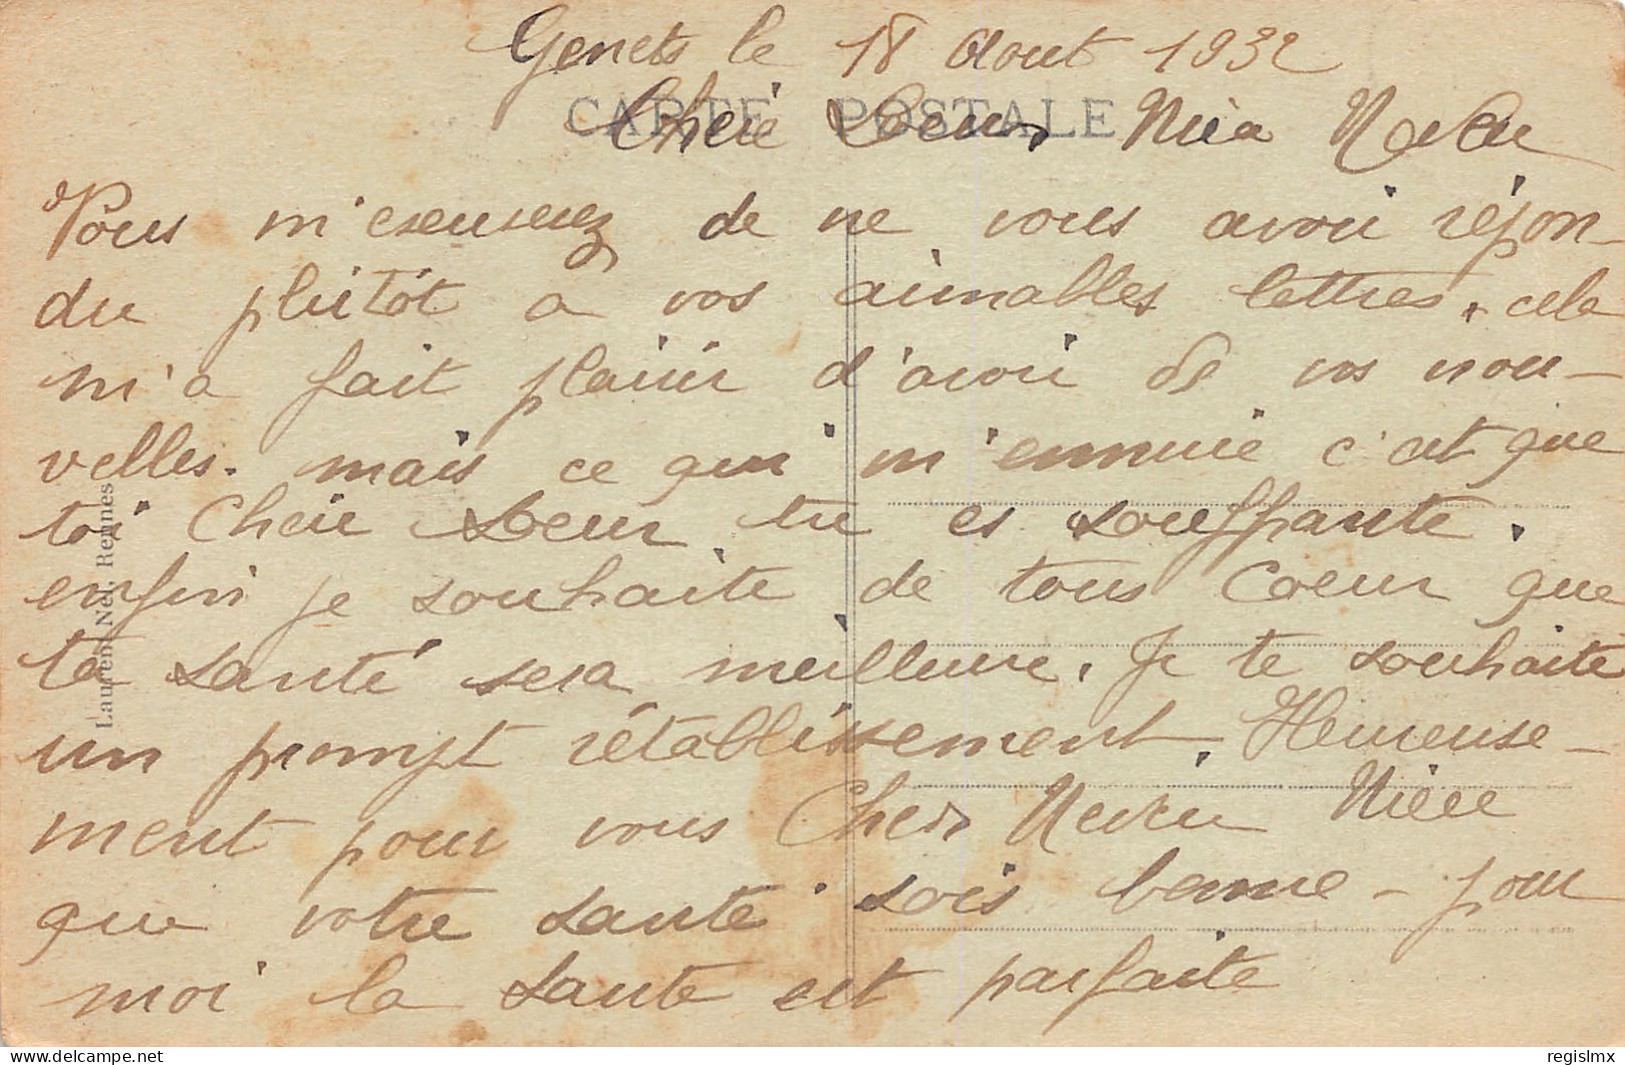 Genets le 18 Aout 1932
CARTE POSTALE
Chère Soeur Niéa Neveu
Vous m'escuserez de ne vous avoir répon-
du plutôt a vos aimables lettres, cela
m'a fait plaisir d'avoir de vos nou-
velles. mais ce qui m'ennuie c'est que
toi Chère Soeur tu es souffrante.
enfin je souhaite de tous Coeur que
ta santé sera meilleure. Je te souhaite
un prompt rétablissement. Heureuse-
ment pour vous Cher Neveu Nièce
que votre santé sois bonne - pour
moi la santé est parfaite
Laurent Nel, Rennes
delcampe.net
regislmx